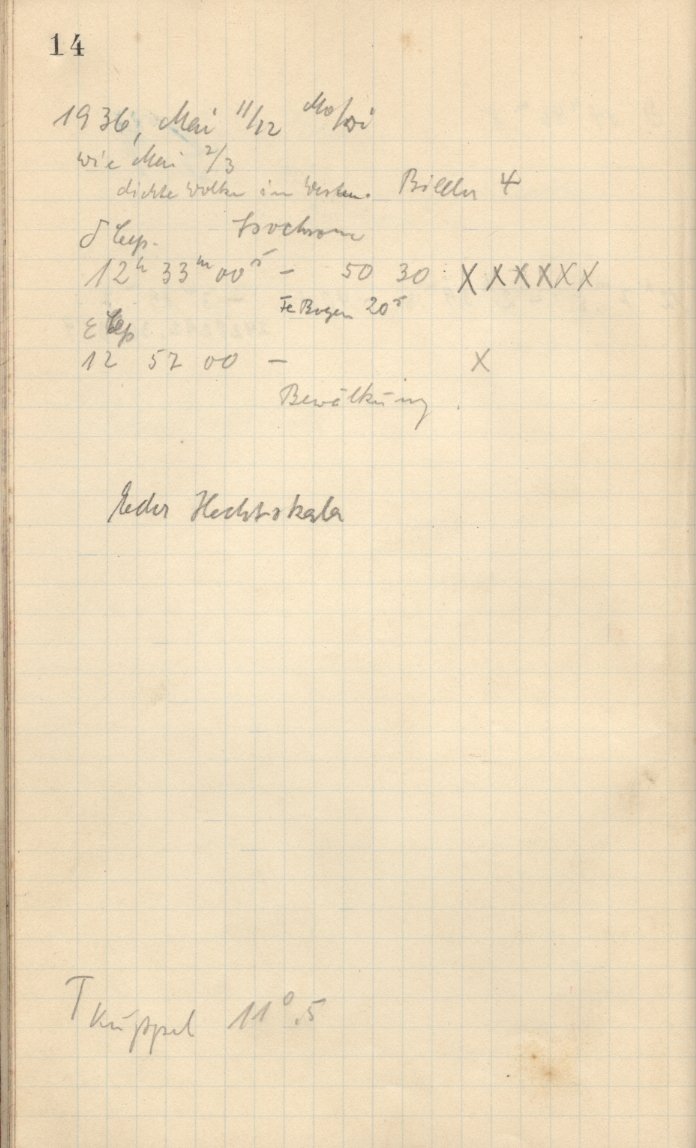 14
1936, Mai 11/12 Mo/Di
wie Mai 2/3
dichte Wolken im Westen. Bilder 4
δ Cep. Isochrom
12ʰ 33ᵐ 00ˢ – 50 30 XXXXXX
Fe Bogen 20ˢ
ε Cep
12 52 00 – X
Bewölkung
Hechtskala
T Kuppel 11°.5